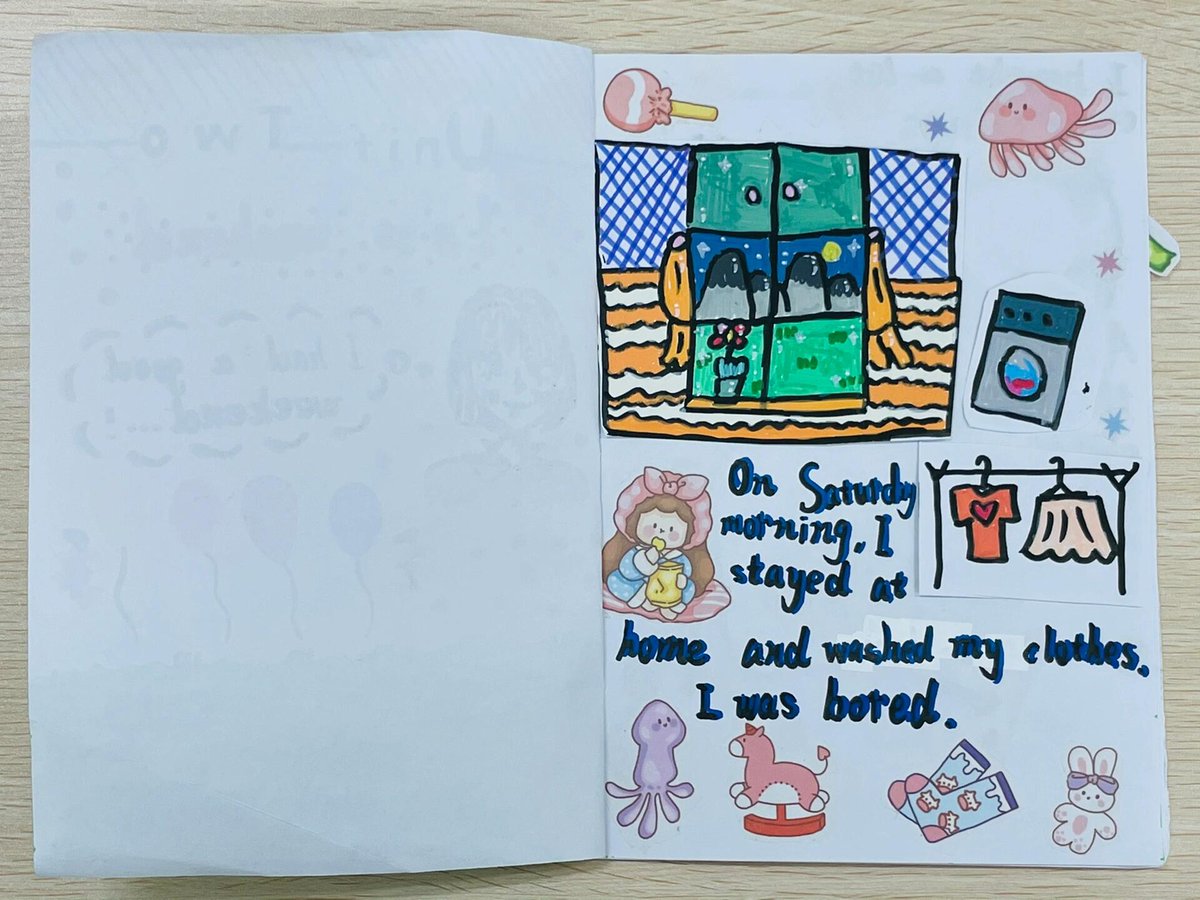 On Saturdy
morning, I
stayed at
home and washed my clothes.
I was bored.